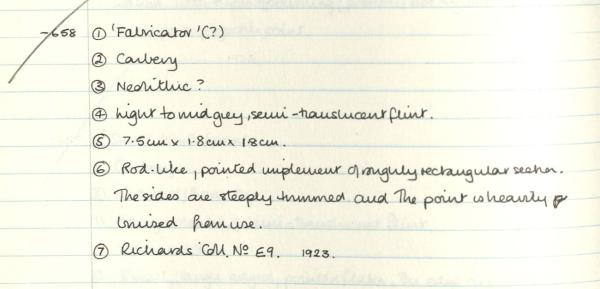 -658 ① 'Fabricator' (?)
② Carbery
③ Neolithic ?
④ Light to mid grey, semi-translucent flint.
⑤ 7.5cm x 1.8cm x 1.8cm.
⑥ Rod-like, pointed implement of roughly rectangular section.
The sides are steeply trimmed and The point is heavily
bruised from use.
⑦ Richards' Coll. No E9. 1923.